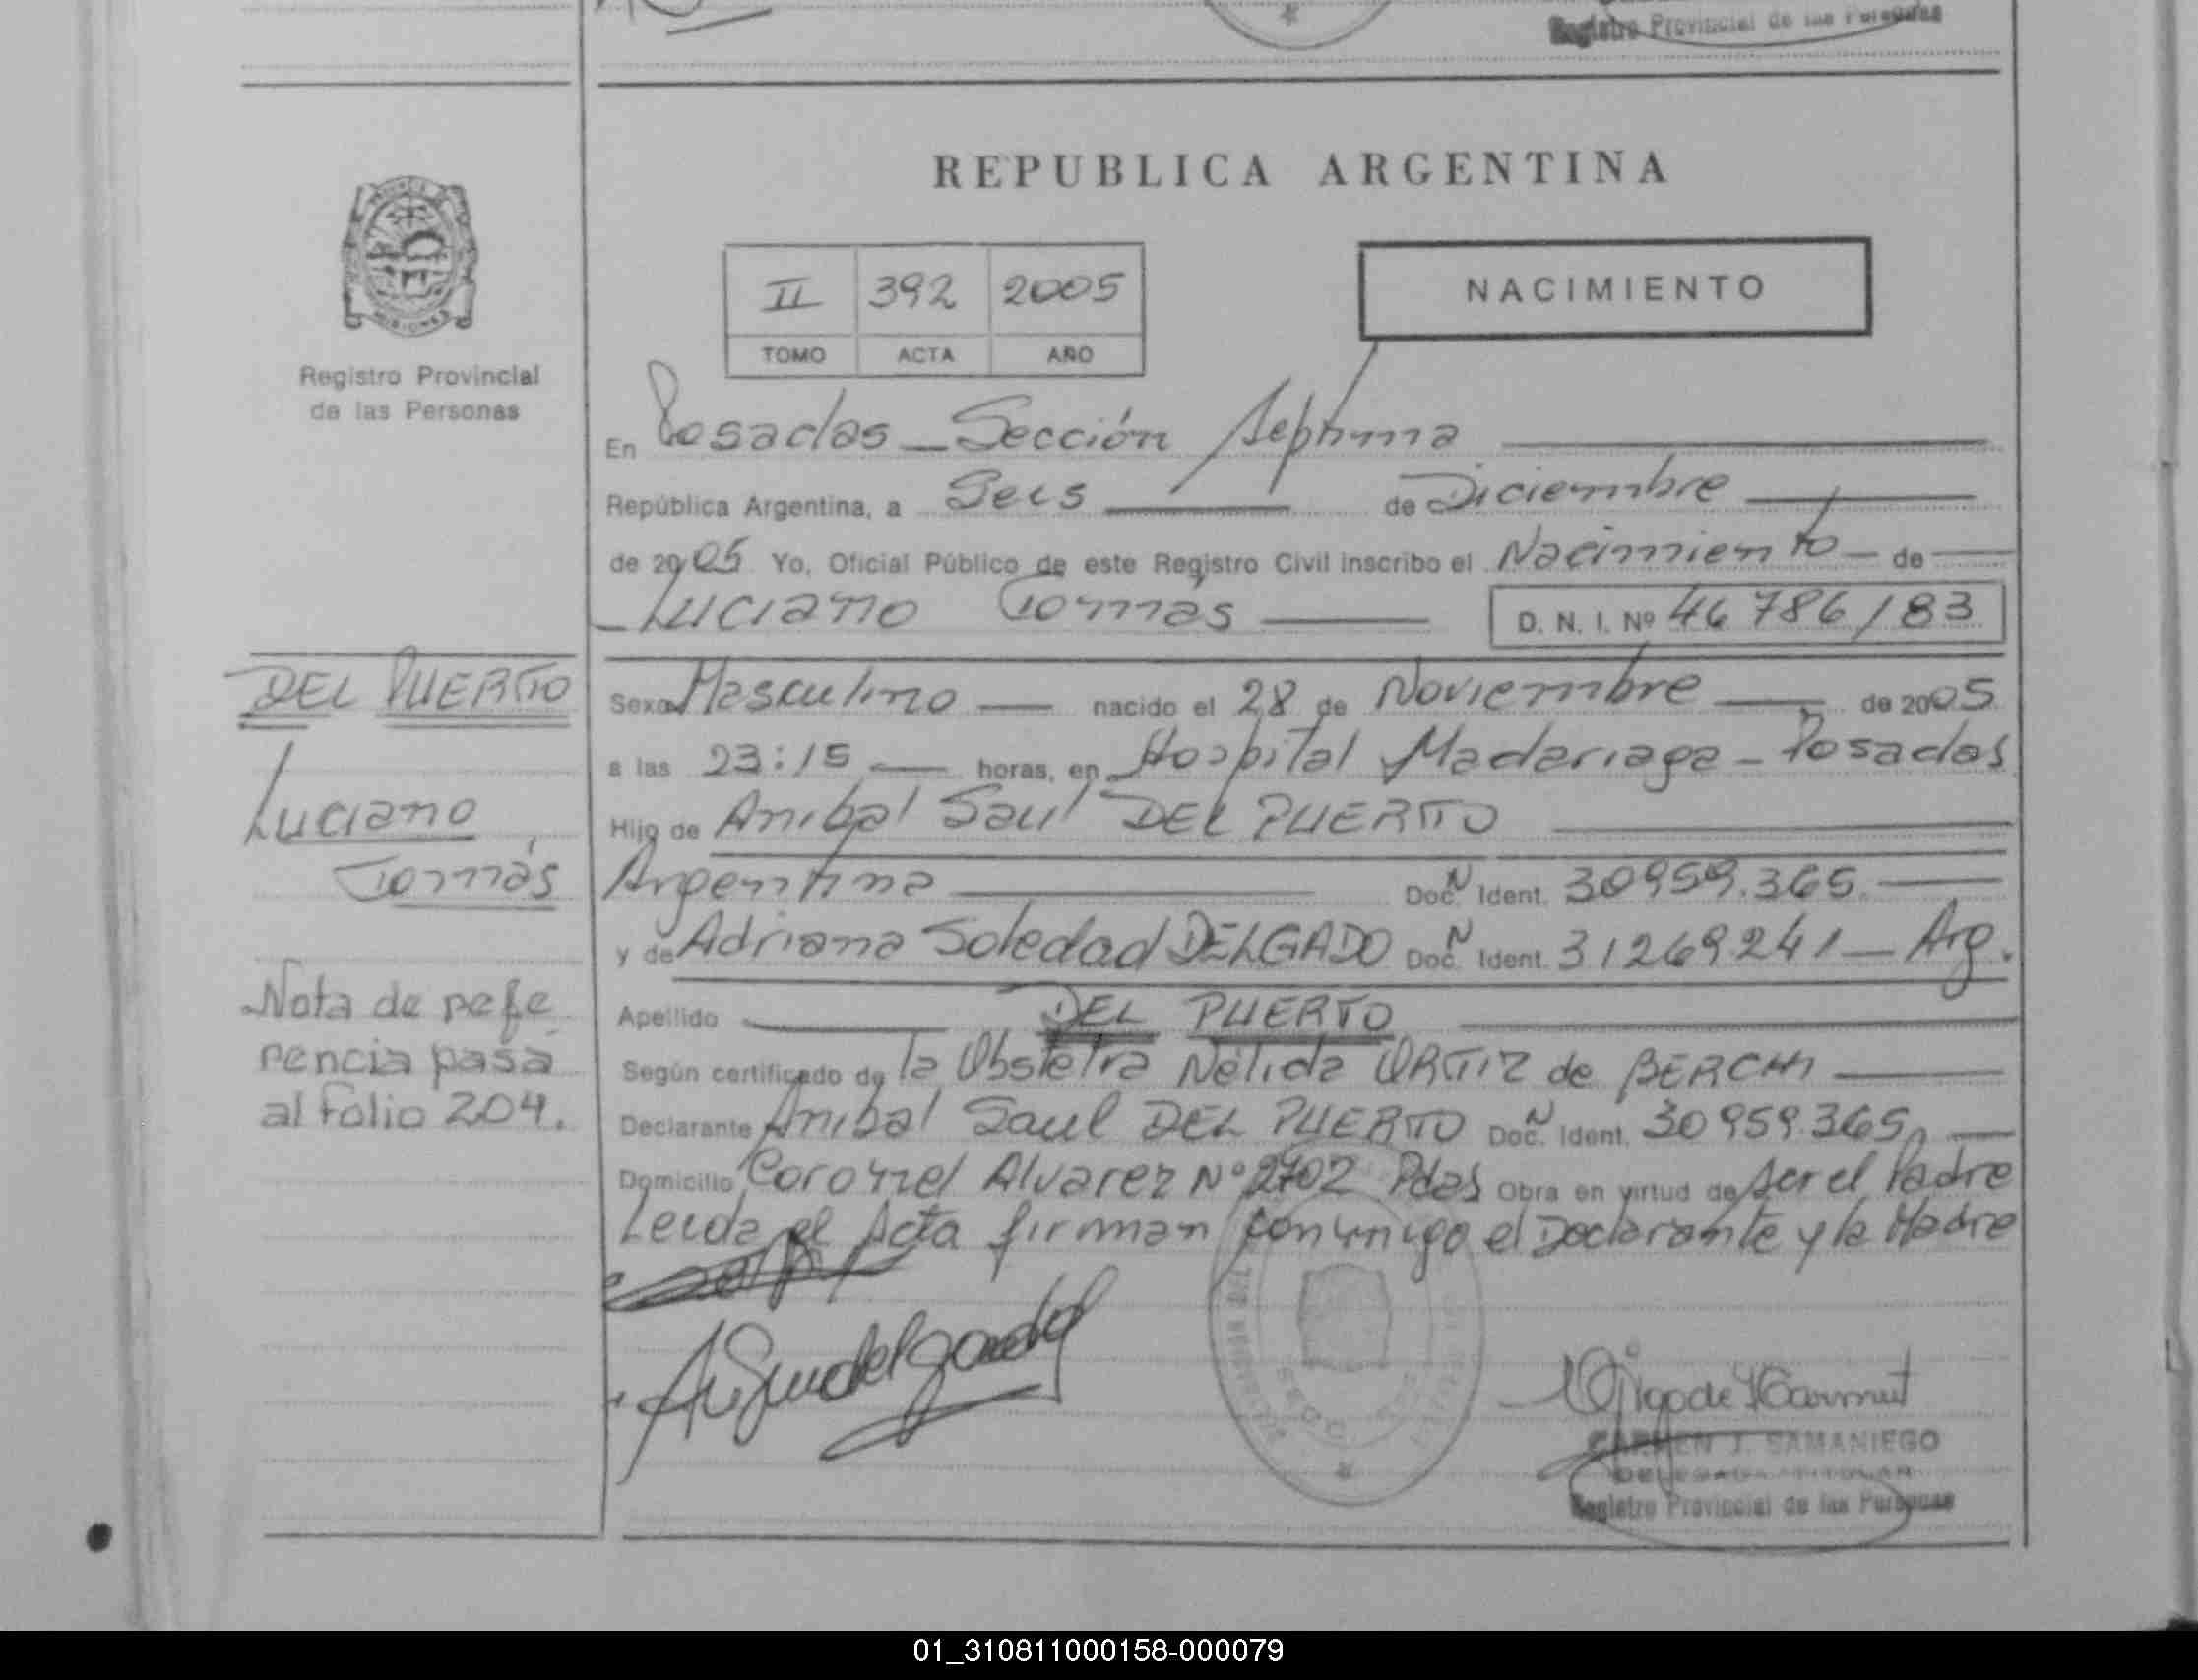 Registro Provincial de las Personas
REPUBLICA ARGENTINA
MISIONES
Registro Provincial
de las Personas
II 392 2005
TOMO ACTA AÑO
NACIMIENTO
En Posadas - Sección Septima
República Argentina, a Seis de Diciembre
de 2005 Yo, Oficial Público de este Registro Civil inscribo el Nacimiento de
Luciano Tomás D. N. I. Nº 46 786 183
DEL PUERTO
Luciano
Tomás
Nota de refe
rencia pasa
al folio 204.
Sexo Masculino nacido el 28 de Noviembre de 2005
a las 23:15 horas, en Hospital Madariaga - Posadas
Hijo de Anibal Saul DEL PUERTO
Argentina Doc. N Ident. 30959.365.
y de Adriana Soledad DELGADO Doc. N Ident. 31269241 - Arg.
Apellido DEL PUERTO
Según certificado de la Obstetra Nélida ORTIZ de BERCHI
Declarante Anibal Saul DEL PUERTO Doc. N Ident. 30959.365
Domicilio Coronel Alvarez Nº 2702 Pdas Obra en virtud de ser el Padre
Leida el Acta firman conmigo el Declarante y la Madre
CARMEN J. SAMANIEGO
DELEGADA TITULAR
Registro Provincial de las Personas
01_310811000158-000079